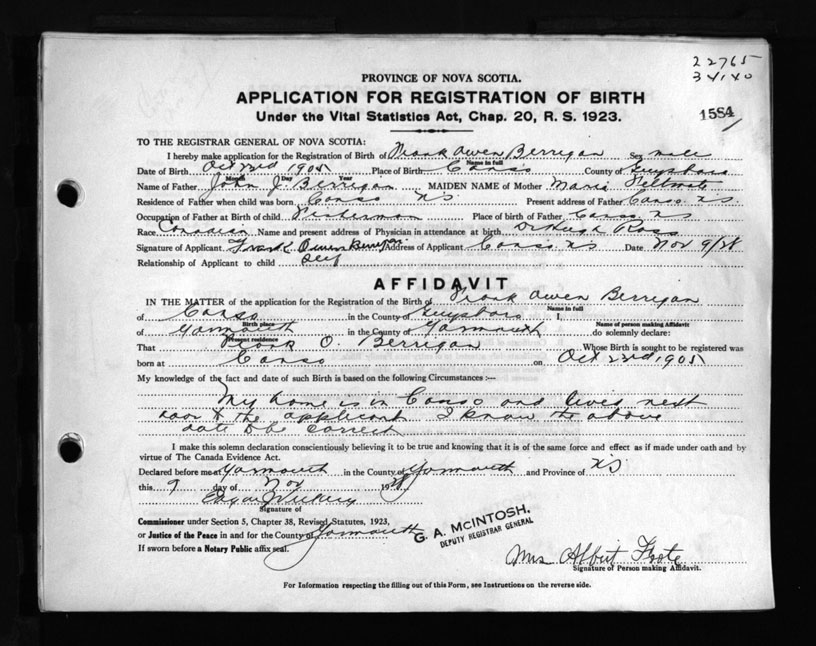 22765
34140
PROVINCE OF NOVA SCOTIA.
APPLICATION FOR REGISTRATION OF BIRTH
1584
Under the Vital Statistics Act, Chap. 20, R. S. 1923.
TO THE REGISTRAR GENERAL OF NOVA SCOTIA:
I hereby make application for the Registration of Birth of Frank Owen Berrigan Sex male
Name in full
Date of Birth Oct 23rd 1905 Place of Birth Canso County of Guysboro
Month Day Year
Name of Father John J. Berrigan MAIDEN NAME of Mother Maria
Residence of Father when child was born Canso NS Present address of Father Canso N.S.
Occupation of Father at Birth of child Fisherman Place of birth of Father Canso NS
Race Canadian Name and present address of Physician in attendance at birth Dr Hugh Ross
Signature of Applicant Frank Owen Berrigan Address of Applicant Canso NS Date Nov 9/28
Relationship of Applicant to child Self
AFFIDAVIT
IN THE MATTER of the application for the Registration of the Birth of Frank Owen Berrigan
Name in full
of Canso in the County of Guysboro I,
Birth place Name of person making Affidavit
of Yarmouth in the County of Yarmouth do solemnly declare:
Present residence
That Frank O. Berrigan Whose Birth is sought to be registered was
born at Canso on Oct 23rd 1905
My knowledge of the fact and date of such Birth is based on the following Circumstances :—
My home is in Canso and lived next
door to the applicant I know the above
date to be correct
I make this solemn declaration conscientiously believing it to be true and knowing that it is of the same force and effect as if made under oath and by
virtue of The Canada Evidence Act.
Declared before me at Yarmouth in the County of Yarmouth and Province of NS
this 9 day of Nov 1928
Signature of
Commissioner under Section 5, Chapter 38, Revised Statutes, 1923,
or Justice of the Peace in and for the County of Yarmouth
If sworn before a Notary Public affix seal.
G. A. McINTOSH,
DEPUTY REGISTRAR GENERAL
Mrs Albert Foote
Signature of Person making Affidavit.
For Information respecting the filling out of this Form, see Instructions on the reverse side.